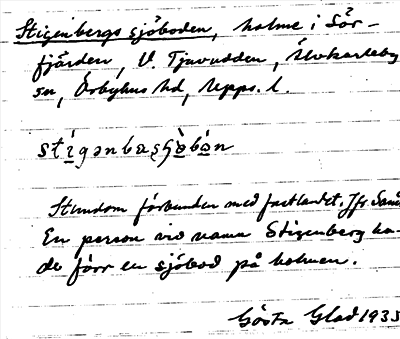 Stigenbergs sjöboden, holme i Sör-
fjärden, V. Tjuvudden, Älvkarleby
sn, Örbyhus hd, Upps. l.
stigənba̤ʂʃöbón
Stundom förbunden med fastlandet. Jfr Sand
En person vid namn Stigenberg ha-
de förr en sjöbod på holmen.
Gösta Glad 1935